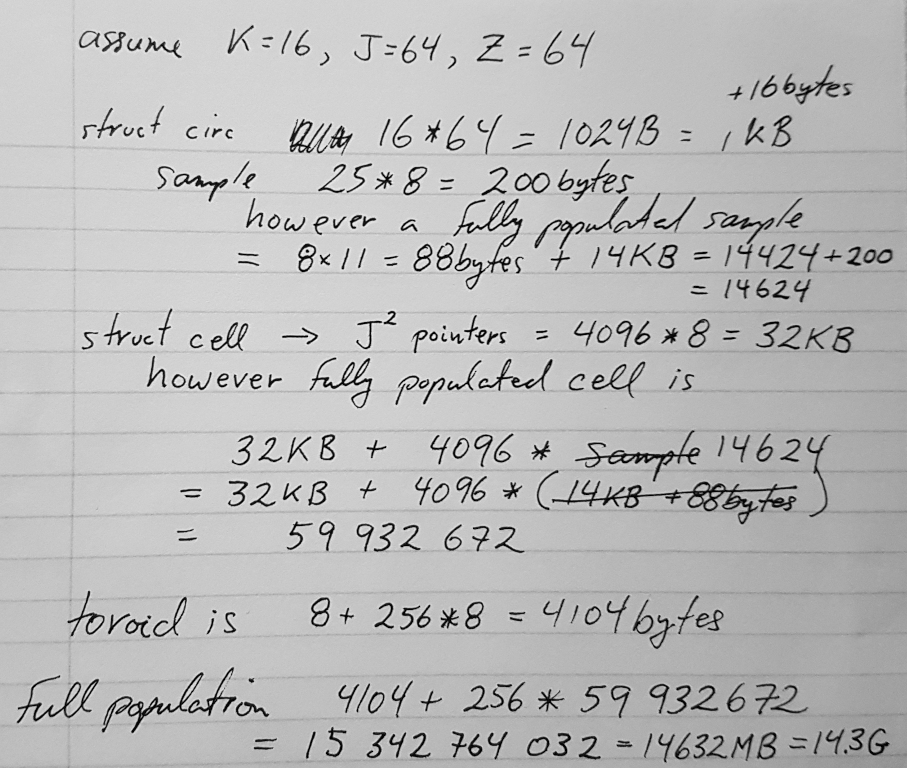 assume K=16, J=64, Z=64
+16bytes
struct circ 16*64 = 1024B = 1KB
sample 25*8 = 200bytes
however a fully populated sample
= 8×11 = 88bytes + 14KB = 14424+200
= 14624
struct cell → J² pointers = 4096*8 = 32KB
however fully populated cell is
32KB + 4096 * sample 14624
= 32KB + 4096 * (14KB + 88bytes)
= 59 932 672
toroid is 8+ 256*8 = 4104bytes
Full population 4104 + 256 * 59 932672
= 15 342 764 032 = 14632MB = 14.3G